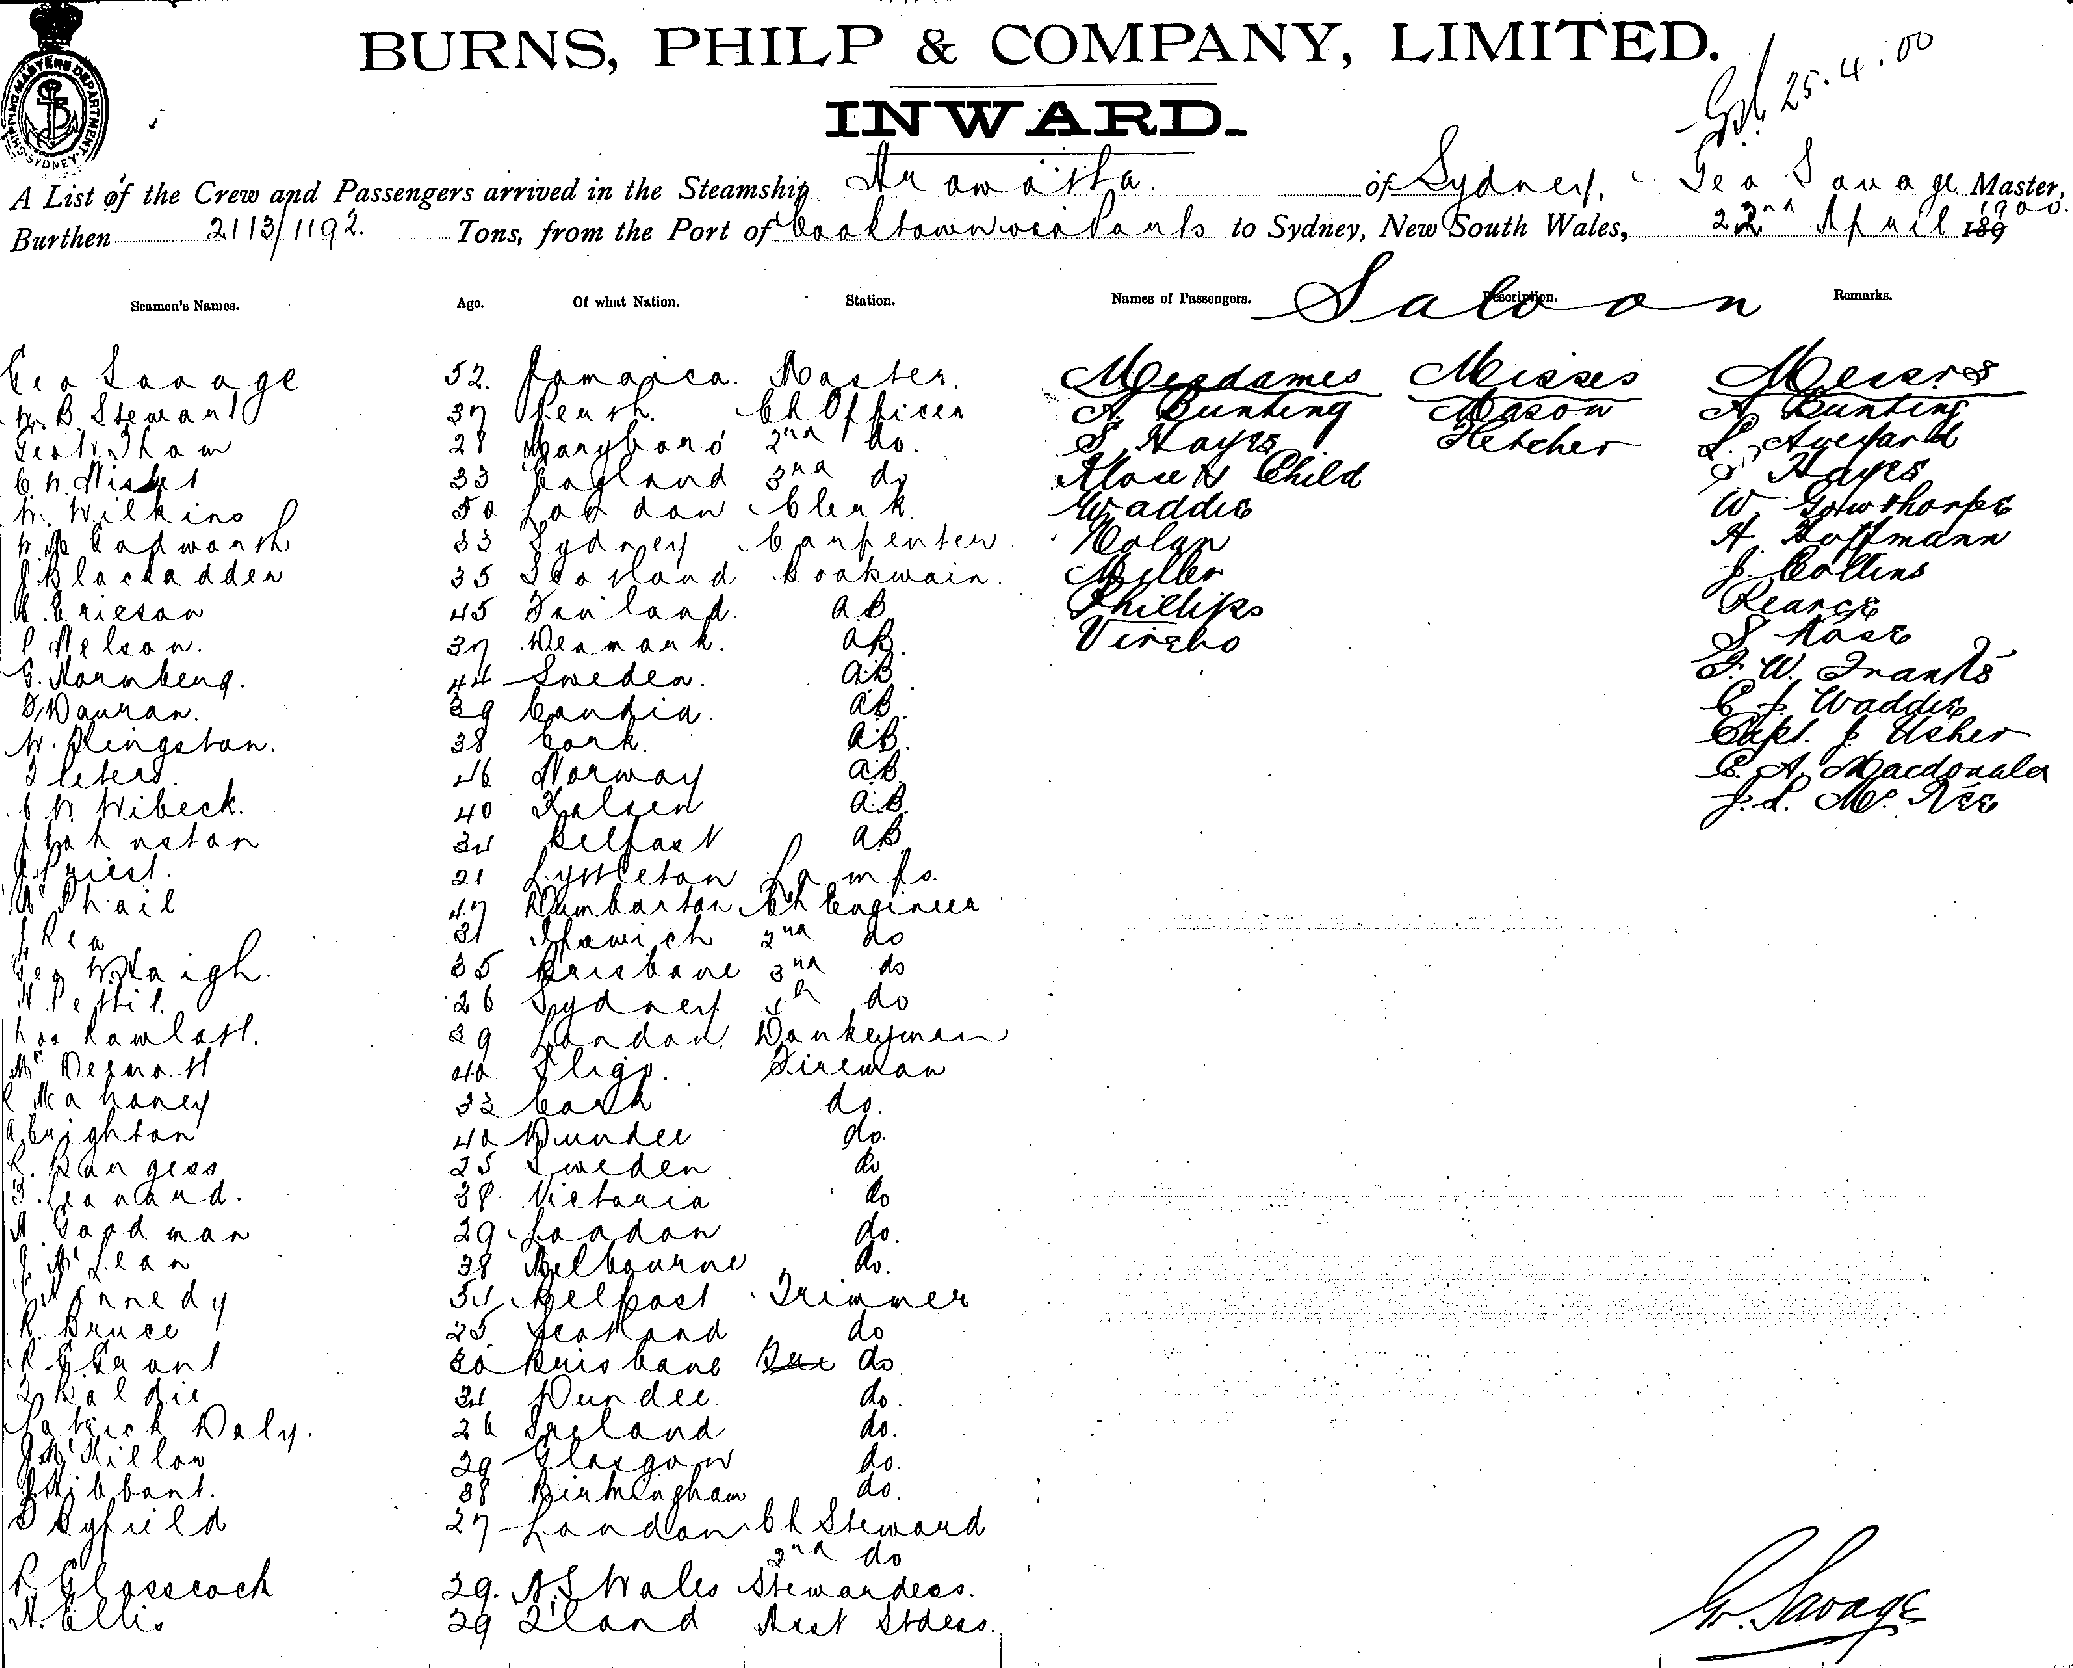 BURNS, PHILP & COMPANY, LIMITED.
INWARD.
25.4.00
SHIPPING MASTERS DEPARTMENT. SYDNEY.
A List of the Crew and Passengers arrived in the Steamship Arawatta. of Sydney, Geo Savage Master,
Burthen 2113/1192. Tons, from the Port of Cooktown via Ports to Sydney, New South Wales, 22nd April 189 1900.
Seamen's Names. Age. Of what Nation. Station. Names of Passengers. Description. Remarks.
Saloon
Geo Savage 52. Jamaica. Master. Mesdames Misses Messrs
W. B. Stewart 37 Ch Officer A. Bunting Mason A Bunting
28 Maryboro' 2nd do. S. Hayes Fletcher L. Aveyard
C. W. Nisbet 33 England 3rd do & Child S Hayes
W. Wilkins 50 London Clerk Waddie W Gowthorpe
33 Sydney Carpenter Nolan A. Hoffmann
J Blackadder 35 Scotland Miller J Collins
Ericson 45 Finland. AB Phillips Pearce
P Nelson. 37 Denmark. AB. Vircho S Rose
G. Nornberg. 44 Sweden. AB F. W. Franks
39 Candia. AB. C J. Waddie
W. Kingston. 38 Cork. AB. Capt. J. Usher
Peters. 46 Norway AB C. A. Macdonald
C W Wibeck. 40 AB. J. L. Mc Kee
J Johnston 34 Belfast AB
J. Priest. 21 Lyttleton Lamps.
McPhail 47 Dumbarton Ch Engineer
J Rea 31 Ipswich 2nd do
Geo W Haigh. 35 Brisbane 3rd do
W. Pettit. 26 Sydney 4th do
39 London Donkeyman
McDermott 40 Sligo. Fireman
Mahoney 33 Cork do.
Crighton 40 Dundee do.
25 Sweden do
Leonard. 38 Victoria do
Goodman 29 London do.
J. McLean 38 Melbourne do.
Kennedy 34 Belfast Trimmer
R. Bruce 25. Scotland do
Grant 30 Brisbane do
Baldie 34 Dundee. do.
Patrick Daly. 26 Ireland do.
J McKillon 29 Glasgow do.
Hibbart. 38 Birmingham do.
Byfield 27 London Ch Steward
2nd do
Glasscock 29. N. S. Wales Stewardess.
A. Ellis 29 Q'land Asst Stdess.
G. Savage